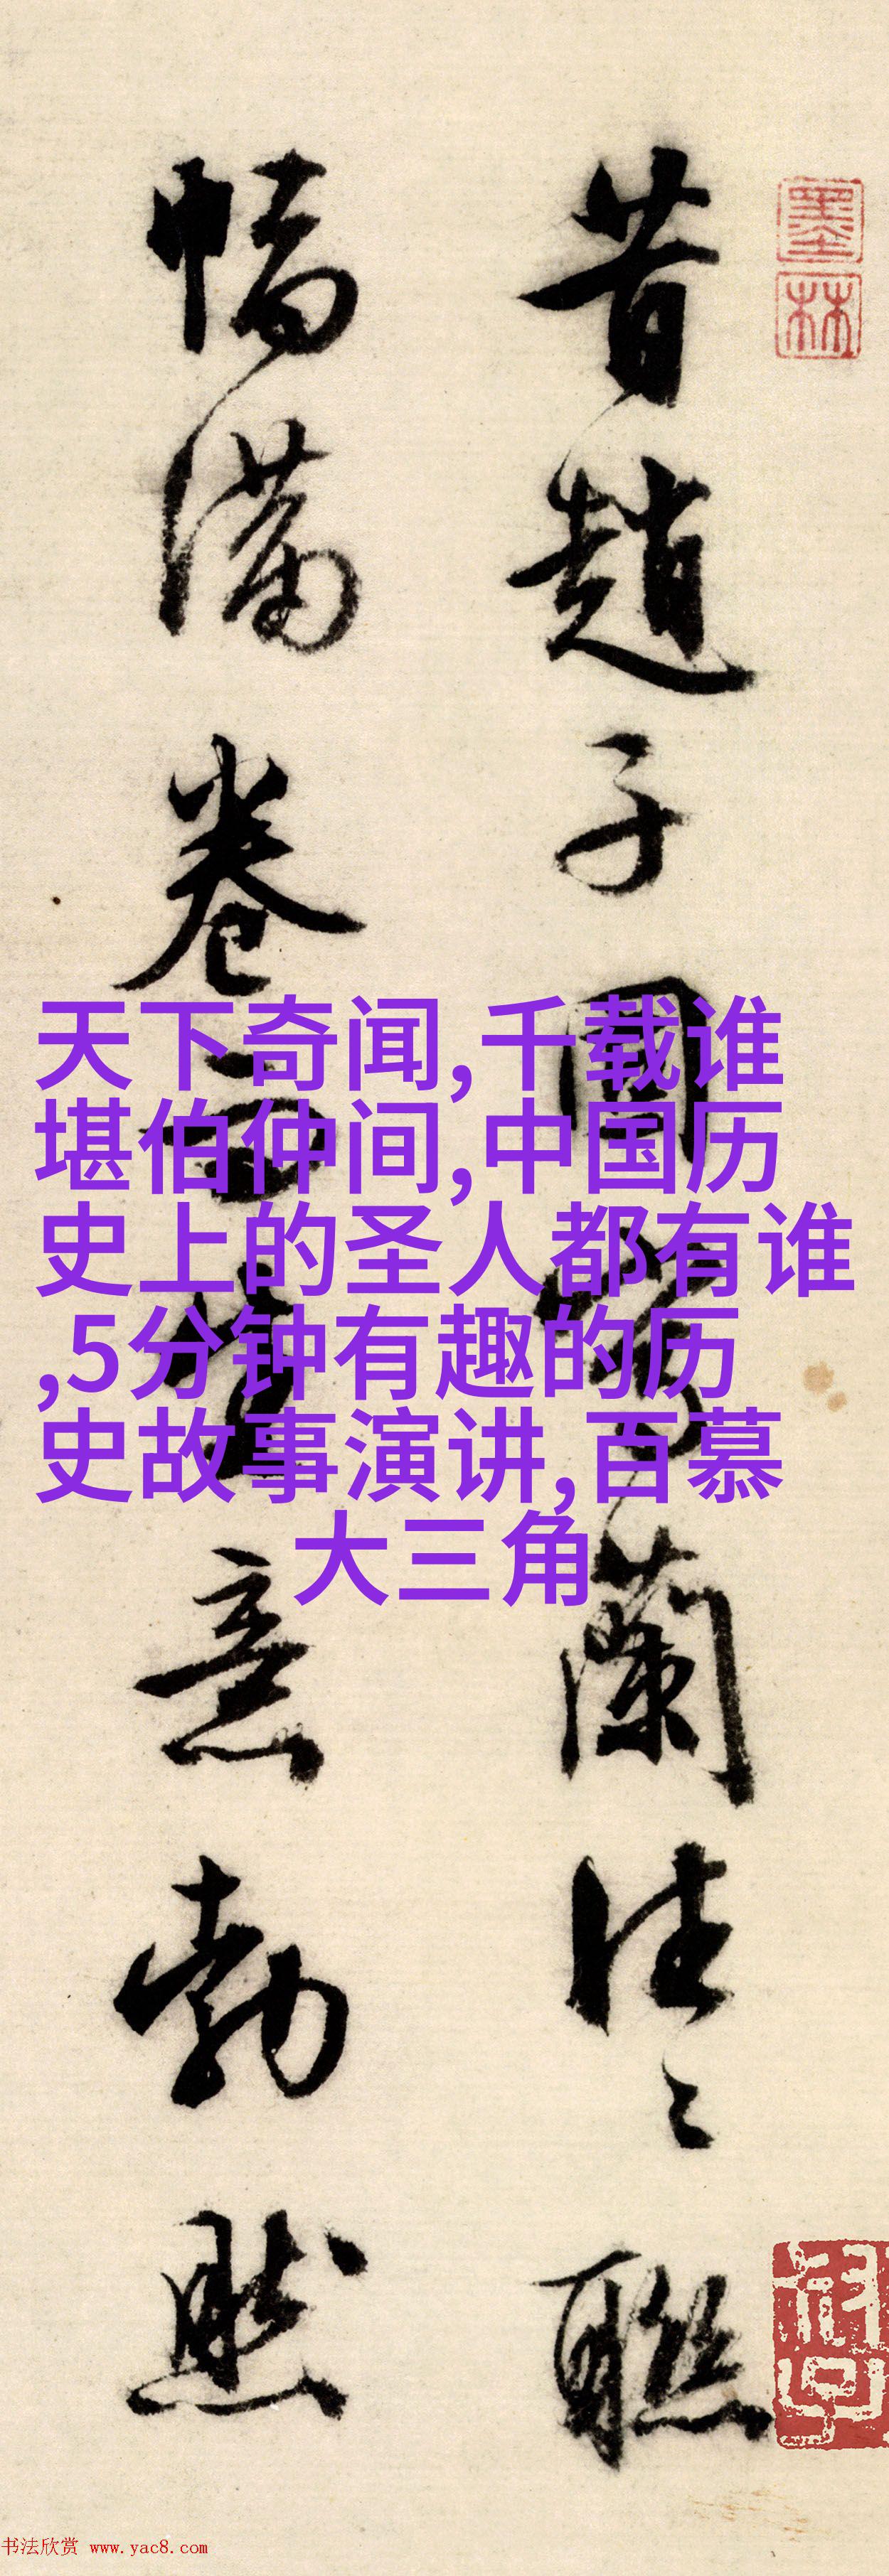 墨林
昔趙子固寫蘭往々聯
幅滿卷而生意勃然
天下奇闻,千载谁
堪伯仲间,中国历
史上的圣人都有谁
,5分钟有趣的历
史故事演讲,百慕
大三角
书法欣赏 www.yac8.com